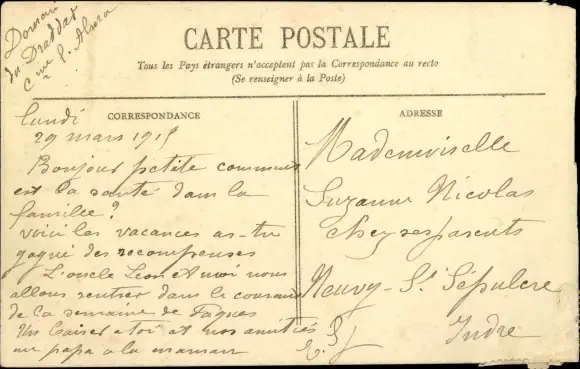 Domaine
du Draddat
Cne S. Alma
CARTE POSTALE
Tous les Pays étrangers n'acceptent pas la Correspondance au recto
(Se renseigner à la Poste)
CORRESPONDANCE
lundi
29 mars 1915
Bonjour petite comment
est la santé dans la
famille?
voici les vacances as-tu
gagné des recompenses
L'oncle Leon et moi nous
allons rentrer dans le courant
de la semaine de Paques
Un baiser a toi et nos amitiés
au papa a la maman
ADRESSE
Mademoiselle
Suzanne Nicolas
chez ses parents
Neuvy-St Sépulcre
Indre